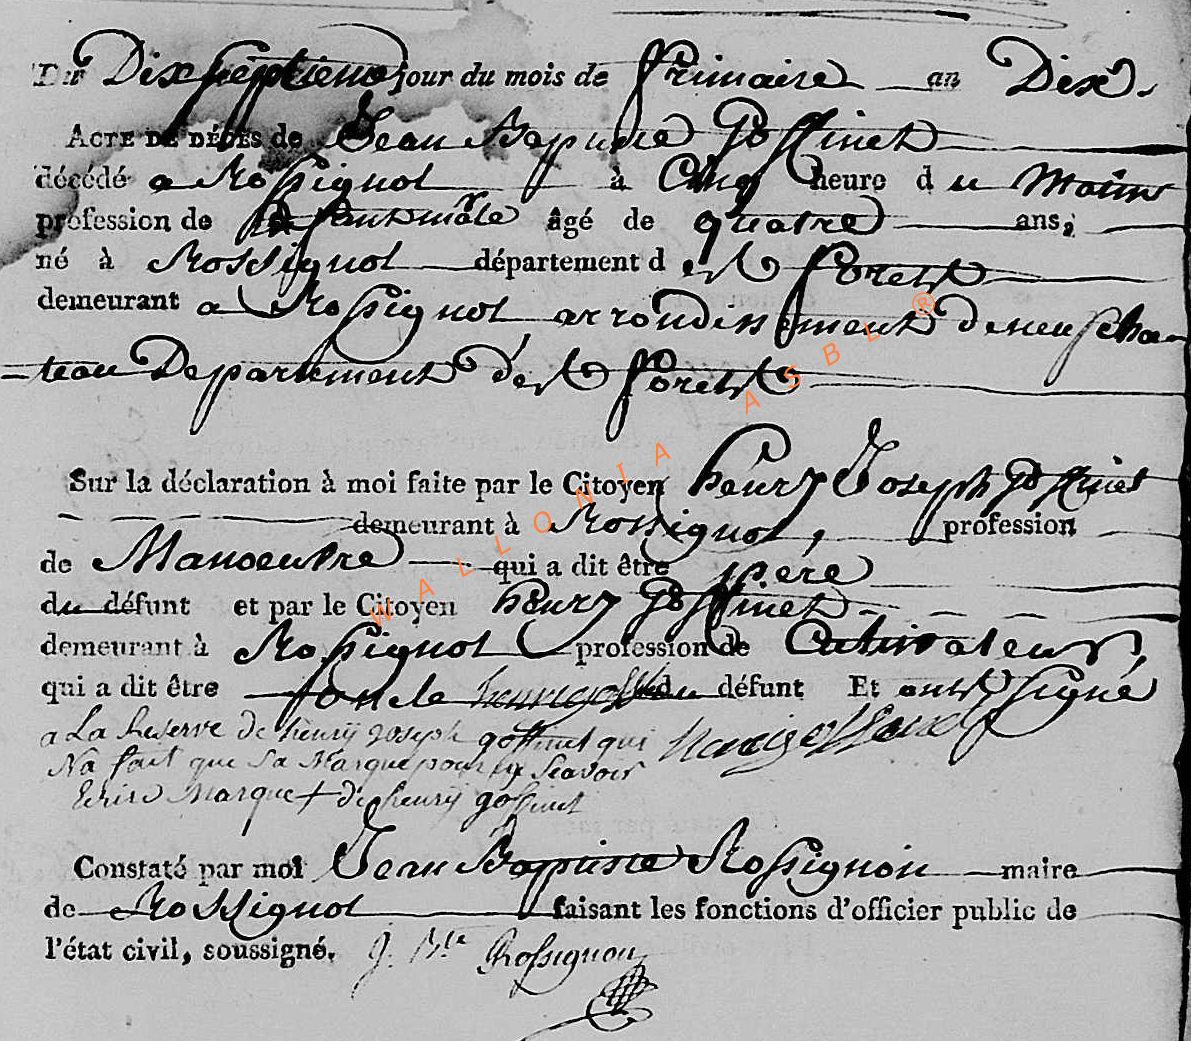 Du Dix septieme jour du mois de frimaire an Dix.
ACTE DE DÉCÈS de Jean Baptiste Goffinet
décédé a Rossignol à Cinq heure du Matin
profession de Enfant male âgé de quatre ans,
né à Rossignol département des forets
demeurant a Rossignol arrondissement de neufcha
-teau Departement des forets
Sur la déclaration à moi faite par le Citoyen henry Joseph Goffinet
demeurant à Rossignol, profession
de Manoeuvre qui a dit être pere
du défunt et par le Citoyen henry Goffinet
demeurant à Rossignol profession de Cultivateur,
qui a dit être du défunt Et ont signé
a La Reserve de henry joseph goffinet qui
Na fait que Sa Marque pour ne Scavoir
Ecrire Marque + de henry goffinet
Constaté par moi Jean Baptiste Rossignon maire
de Rossignol faisant les fonctions d'officier public de
l'état civil, soussigné. J. Bte Rossignon
WALLONIA ASBL ®